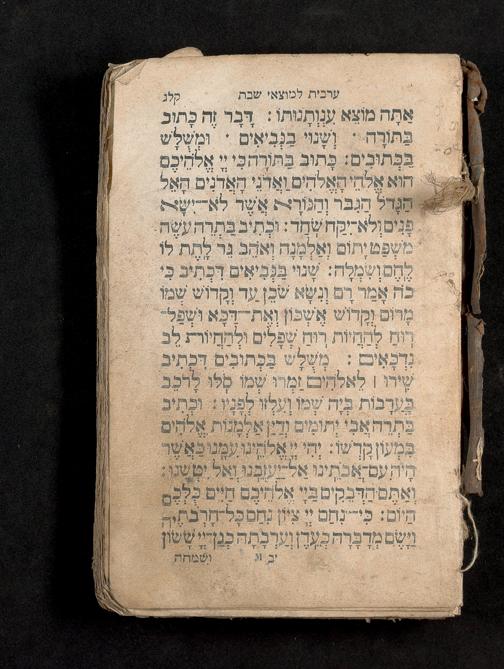 ערבית למוצאי שבת קלג
אַתָּה מוֹצֵא עִנְוְתָנוּתוֹ : דָּבָר זֶה כָּתוּב
בַּתּוֹרָה · וְשָׁנוּי בַּנְּבִיאִים · וּמְשֻׁלָּשׁ
בַּכְּתוּבִים : כָּתוּב בַּתּוֹרָה כִּי יְיָ אֱלֹהֵיכֶם
הוּא אֱלֹהֵי הָאֱלֹהִים וַאֲדֹנֵי הָאֲדֹנִים הָאֵל
הַגָּדֹל הַגִּבֹּר וְהַנּוֹרָא אֲשֶׁר לֹא־יִשָּׂא
פָנִים וְלֹא־יִקַּח שֹׁחַד : וּכְתִיב בַּתְרֵהּ עֹשֶׂה
מִשְׁפַּט יָתוֹם וְאַלְמָנָה וְאֹהֵב גֵּר לָתֶת לוֹ
לֶחֶם וְשִׂמְלָה : שָׁנוּי בַּנְּבִיאִים דִּכְתִיב כִּי
כֹה אָמַר רָם וְנִשָּׂא שֹׁכֵן עַד וְקָדוֹשׁ שְׁמוֹ
מָרוֹם וְקָדוֹשׁ אֶשְׁכּוֹן וְאֶת־דַּכָּא וּשְׁפַל־
רוּחַ לְהַחֲיוֹת רוּחַ שְׁפָלִים וּלְהַחֲיוֹת לֵב
נִדְכָּאִים : מְשֻׁלָּשׁ בַּכְּתוּבִים דִּכְתִיב
שִׁירוּ | לֵאלֹהִים זַמְּרוּ שְׁמוֹ סֹלּוּ לָרֹכֵב
בָּעֲרָבוֹת בְּיָהּ שְׁמוֹ וְעִלְזוּ לְפָנָיו : וּכְתִיב
בַּתְרֵהּ אֲבִי יְתוֹמִים וְדַיַּן אַלְמָנוֹת אֱלֹהִים
בִּמְעוֹן קָדְשׁוֹ : יְהִי יְיָ אֱלֹהֵינוּ עִמָּנוּ כַּאֲשֶׁר
הָיָה עִם־אֲבֹתֵינוּ אַל־יַעַזְבֵנוּ וְאַל יִטְּשֵׁנוּ :
וְאַתֶּם הַדְּבֵקִים בַּיְיָ אֱלֹהֵיכֶם חַיִּים כֻּלְּכֶם
הַיּוֹם : כִּי־נִחַם יְיָ צִיּוֹן נִחַם כָּל־חָרְבֹתֶיהָ
וַיָּשֶׂם מִדְבָּרָהּ כְּעֵדֶן וְעַרְבָתָהּ כְּגַן־יְיָ שָׂשׂוֹן
יב M ושמחה